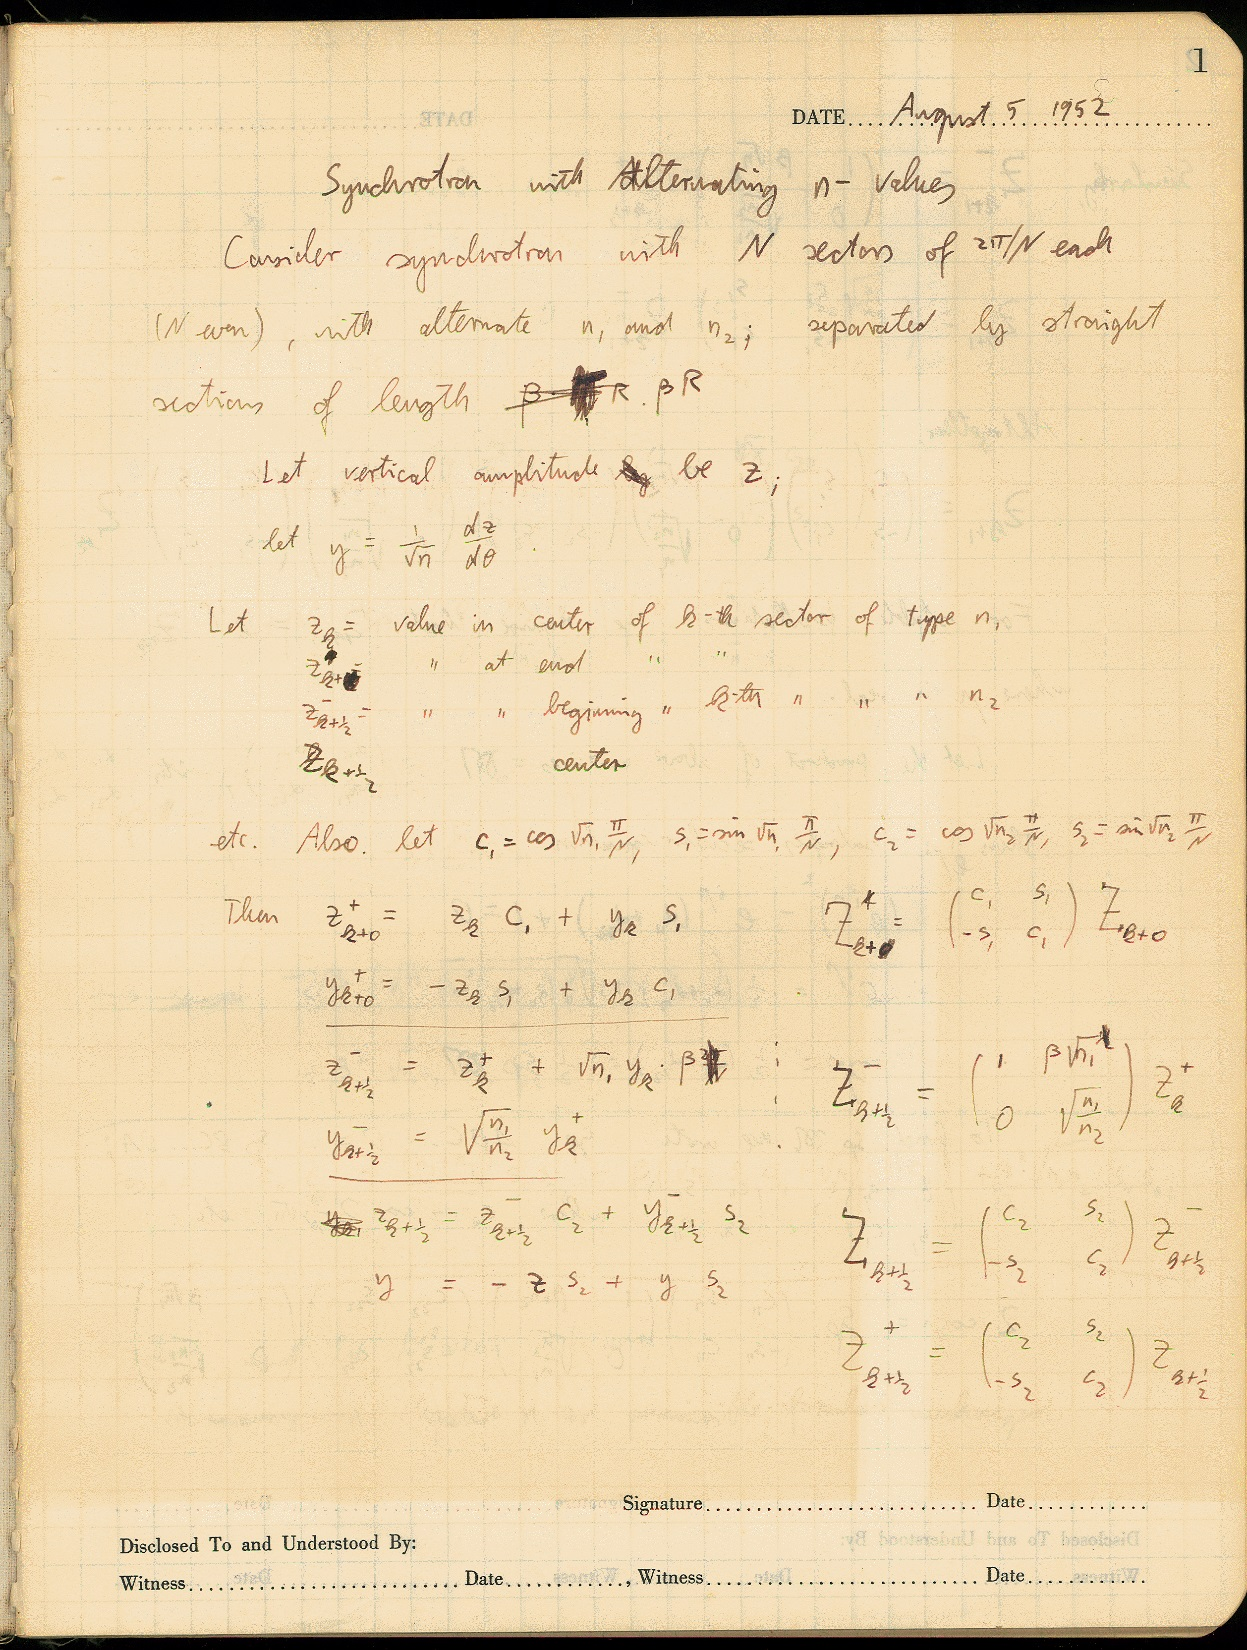 1
DATE August 5 1952
Synchrotron with Alternating n- values
Consider synchrotron with N sectors of 2π/N each
(N even), with alternate n₁ and n₂; separated by straight
sections of length βR
Let vertical amplitude be z;
let y = 1/√n dz/dθ
Let z_k = value in center of k-th sector of type n₁
" at end " "
z⁻_{k+½} = " " beginning " k-th " " " n₂
z_{k+½} center
etc. Also let c₁ = cos √n₁ π/N, s₁ = sin √n₁ π/N, c₂ = cos √n₂ π/N, s₂ = sin √n₂ π/N
Then z⁺_{k+0} = z_k c₁ + y_k s₁ Z⁺_{k+0} = (c₁ s₁ / -s₁ c₁) Z_{k+0}
y⁺_{k+0} = - z_k s₁ + y_k c₁
z⁻_{k+½} = z⁺_k + √n₁ y_k · β ; Z⁻_{k+½} = (1 β√n₁ / 0 √(n₁/n₂)) Z⁺_k
y⁻_{k+½} = √(n₁/n₂) y⁺_k
z_{k+½} = z⁻_{k+½} c₂ + y⁻_{k+½} s₂ Z_{k+½} = (c₂ s₂ / -s₂ c₂) Z⁻_{k+½}
y = - z s₂ + y s₂
Z⁺_{k+½} = (c₂ s₂ / -s₂ c₂) Z_{k+½}
Signature Date
Disclosed To and Understood By:
Witness Date , Witness Date